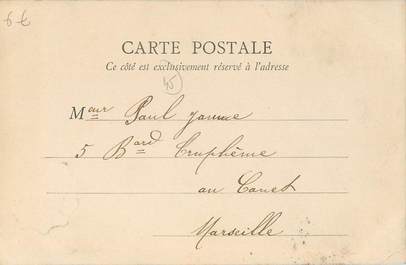 6 €
CARTE POSTALE
Ce côté est exclusivement réservé à l'adresse
45
Meur Paul Jaume
5 Bard Truphème
au Canet
Marseille